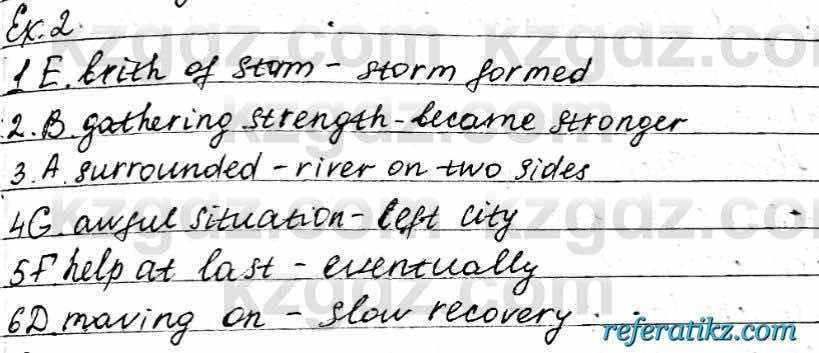 Ex. 2.
1 E. brith of stom - storm formed
2. B. gathering strength - became stronger
3. A. surrounded - river on two sides
4G. awful situation - left city
5F help at last - eventually
6D moving on - slow recovery
kzgdz.com
referatikz.com